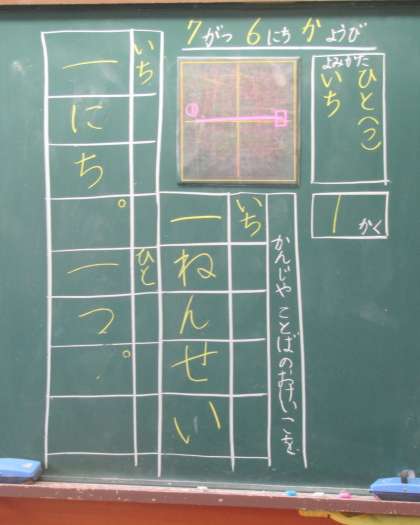 7がつ6にちかようび
よみかた
ひと(つ)
いち
1かく
①
かんじやことばのおけいこを
いち
一ねんせい
いち
一にち。
ひと
一つ。